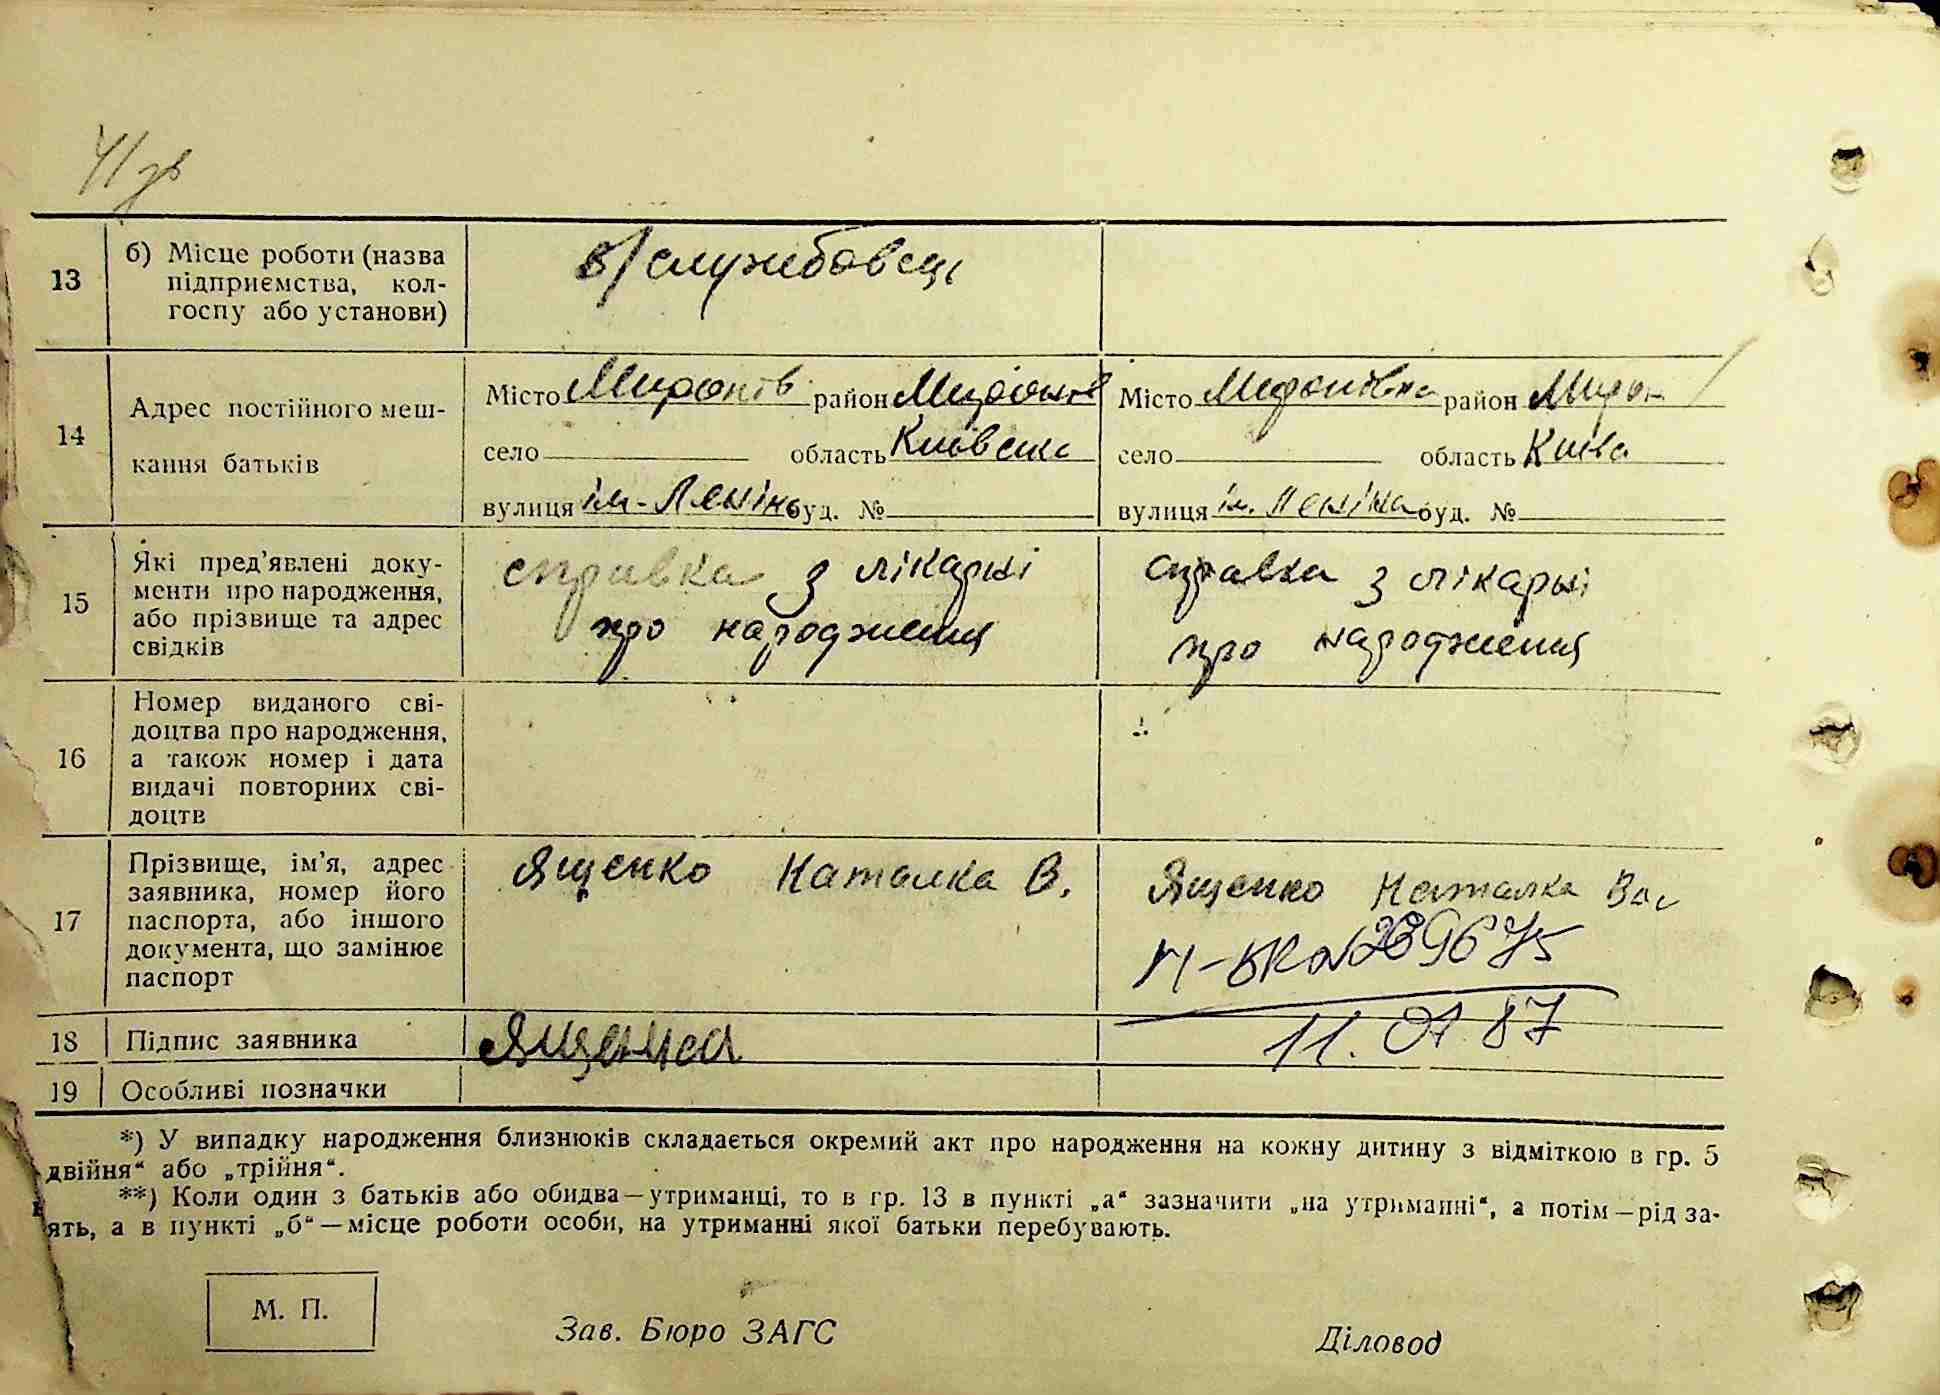 13
б) Місце роботи (назва
підприємства, кол-
госпу або установи)
в/службовец
14
Адрес постійного меш-
кання батьків
Місто Миронів район Миронів
село область Київська
вулиця ім. Леніна буд. №
Місто Миронівка район Мирон
село область Київ
вулиця ім. Леніна буд. №
15
Які пред'явлені доку-
менти про народження,
або прізвище та адрес
свідків
справка з лікарні
про народження
справка з лікарні
про народження
16
Номер виданого сві-
доцтва про народження,
а також номер і дата
видачі повторних сві-
доцтв
17
Прізвище, ім'я, адрес
заявника, номер його
паспорта, або іншого
документа, що замінює
паспорт
Ященко Наталка В.
Ященко Наталка Вас
№ 289675
11.01.87
18
Підпис заявника
Ященко
19
Особливі позначки
*) У випадку народження близнюків складається окремий акт про народження на кожну дитину з відміткою в гр. 5
двійня“ або „трійня“.
**) Коли один з батьків або обидва—утриманці, то в гр. 13 в пункті „а“ зазначити „на утриманні“, а потім—рід за-
ять, а в пункті „б“—місце роботи особи, на утриманні якої батьки перебувають.
М. П.
Зав. Бюро ЗАГС
Діловод